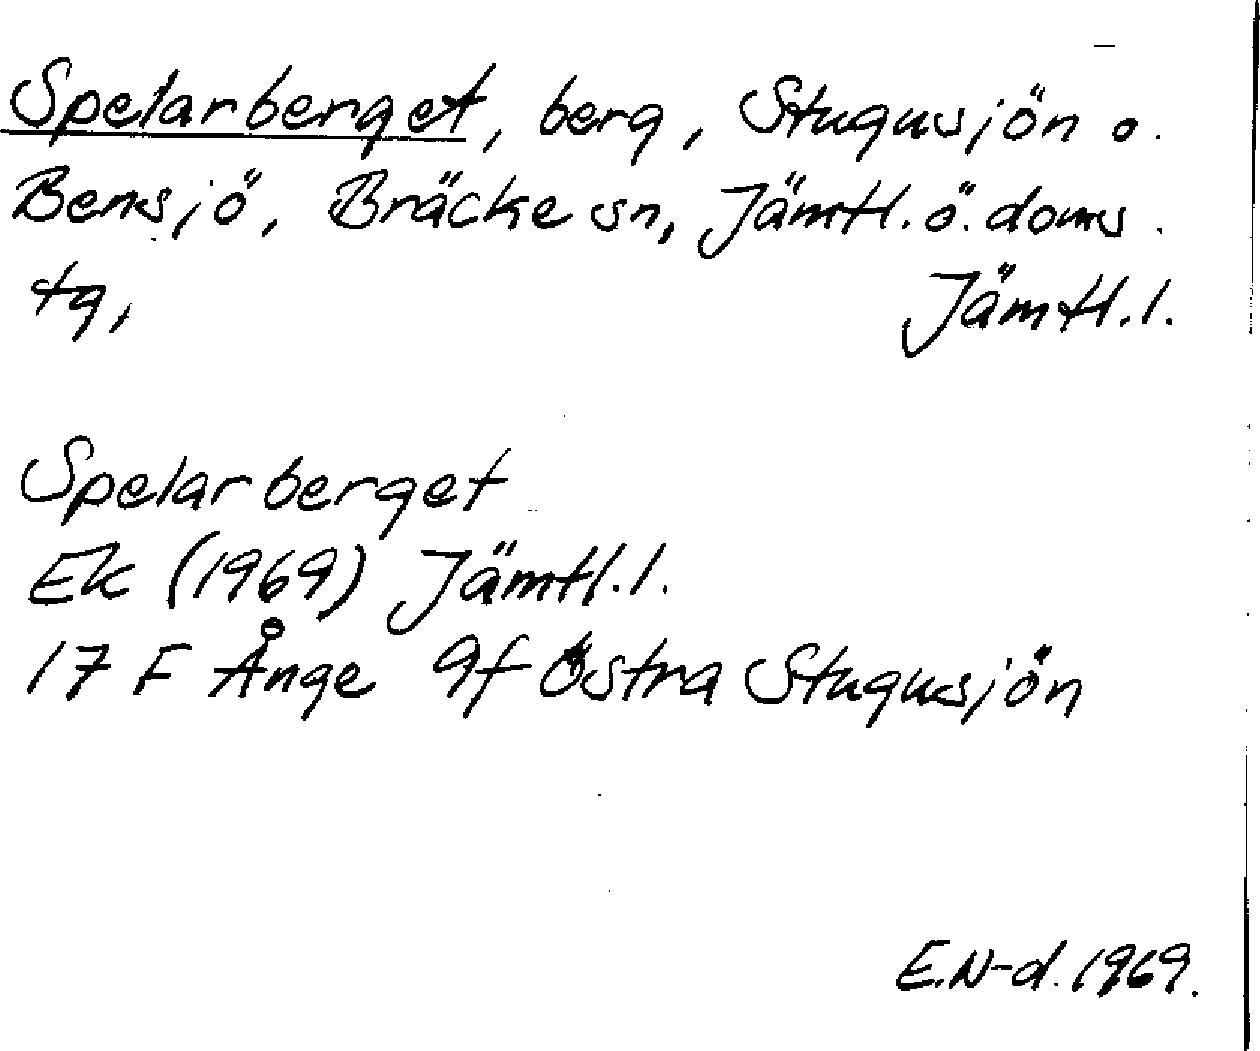 Spelarberget, berg, Stugusjön o.
Bensjö, Bräcke sn, Jämtl. ö. doms.
tg, Jämtl. l.
Spelarberget
Ek (1969) Jämtl. l.
17 F Ånge 9f Östra Stugusjön
E.N-d. 1969.